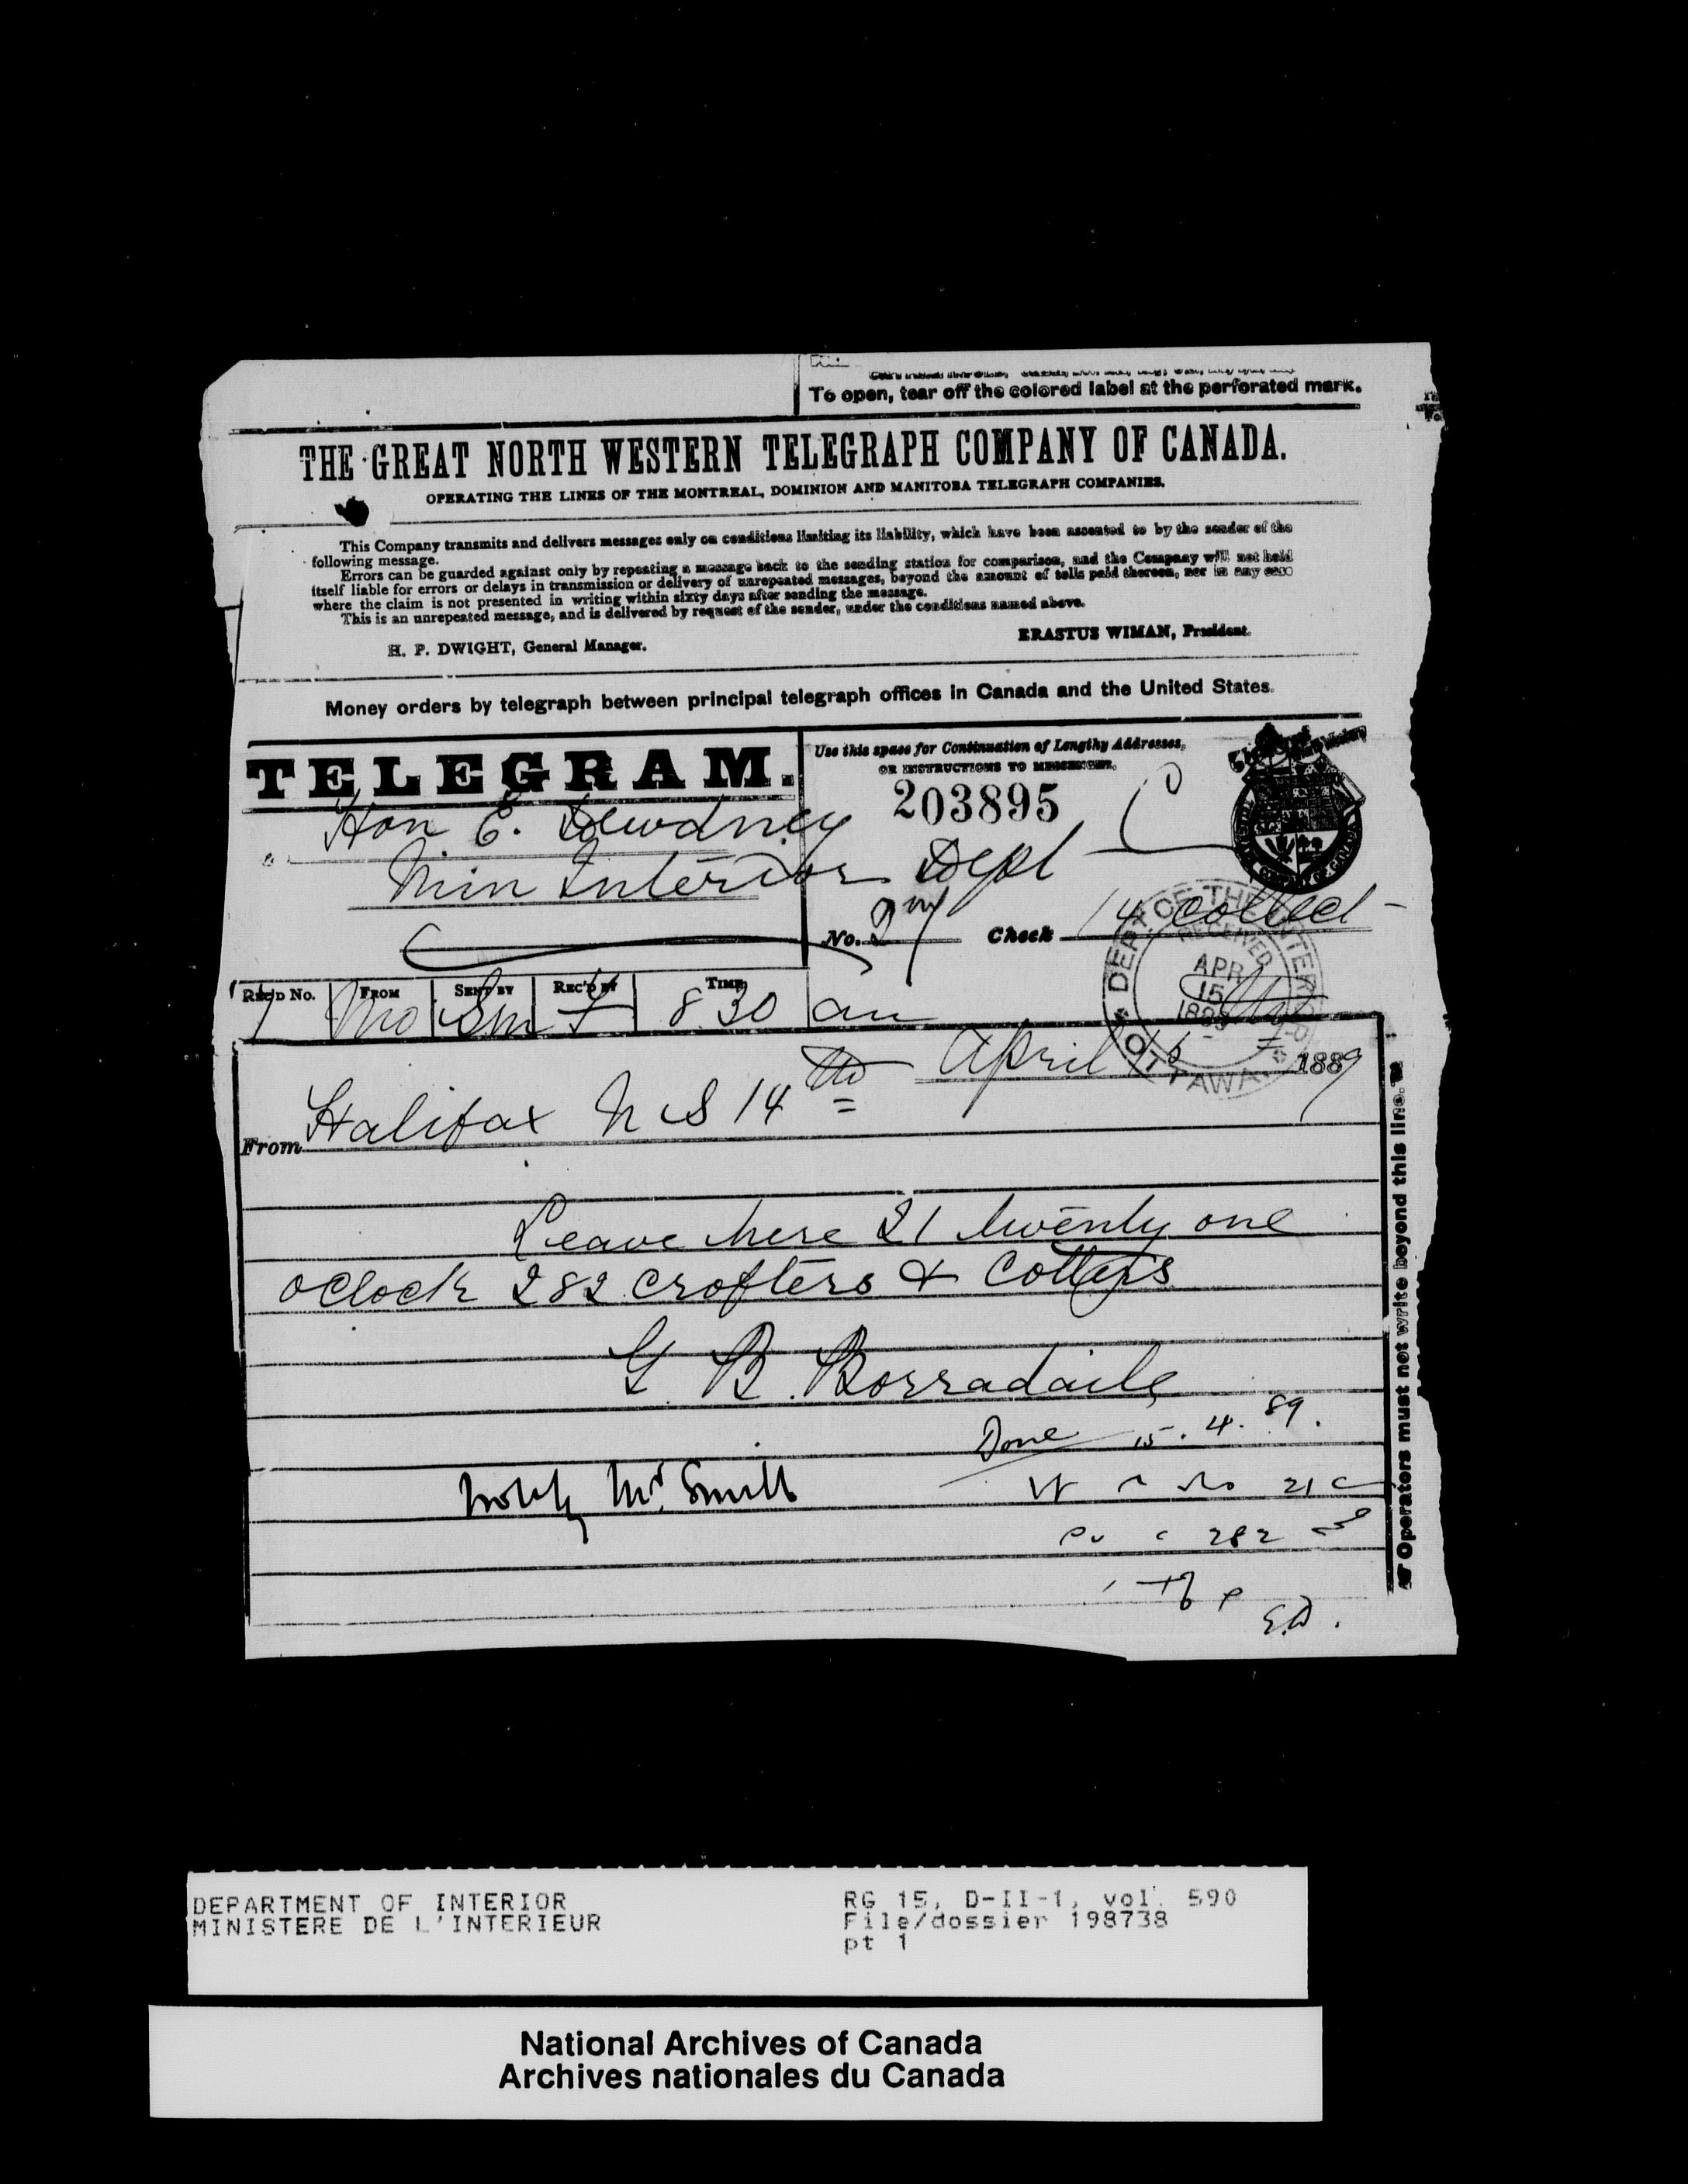 To open, tear off the colored label at the perforated mark.
THE GREAT NORTH WESTERN TELEGRAPH COMPANY OF CANADA.
OPERATING THE LINES OF THE MONTREAL, DOMINION AND MANITOBA TELEGRAPH COMPANIES.
This Company transmits and delivers messages only on conditions limiting its liability, which have been assented to by the sender of the
following message.
Errors can be guarded against only by repeating a message back to the sending station for comparison, and the Company will not hold
itself liable for errors or delays in transmission or delivery of unrepeated messages, beyond the amount of tolls paid thereon, nor in any case
where the claim is not presented in writing within sixty days after sending the message.
This is an unrepeated message, and is delivered by request of the sender, under the conditions named above.
ERASTUS WIMAN, President.
H. P. DWIGHT, General Manager.
Money orders by telegraph between principal telegraph offices in Canada and the United States.
TELEGRAM.
Use this space for Continuation of Lengthy Addresses,
OR INSTRUCTIONS TO MESSENGER.
203895
Hon E. Dewdney
Min Interior Dept
No. Check 14 collect
DEPT. OF THE INTERIOR
RECEIVED
APR
15
1889
OTTAWA
REC'D No. FROM SENT BY REC'D BY TIME
8 30 am
April 15 1889
From Halifax N S 14th
Leave here 21 twenty one
oClock 282 crofters & Cotters
G. B. Borradaile
Done 15. 4. 89.
Notify Mr Smith
21
282
E.D.
Operators must not write beyond this line.
DEPARTMENT OF INTERIOR
MINISTERE DE L'INTERIEUR
RG 15, D-II-1, vol. 590
File/dossier 198738
pt 1
National Archives of Canada
Archives nationales du Canada